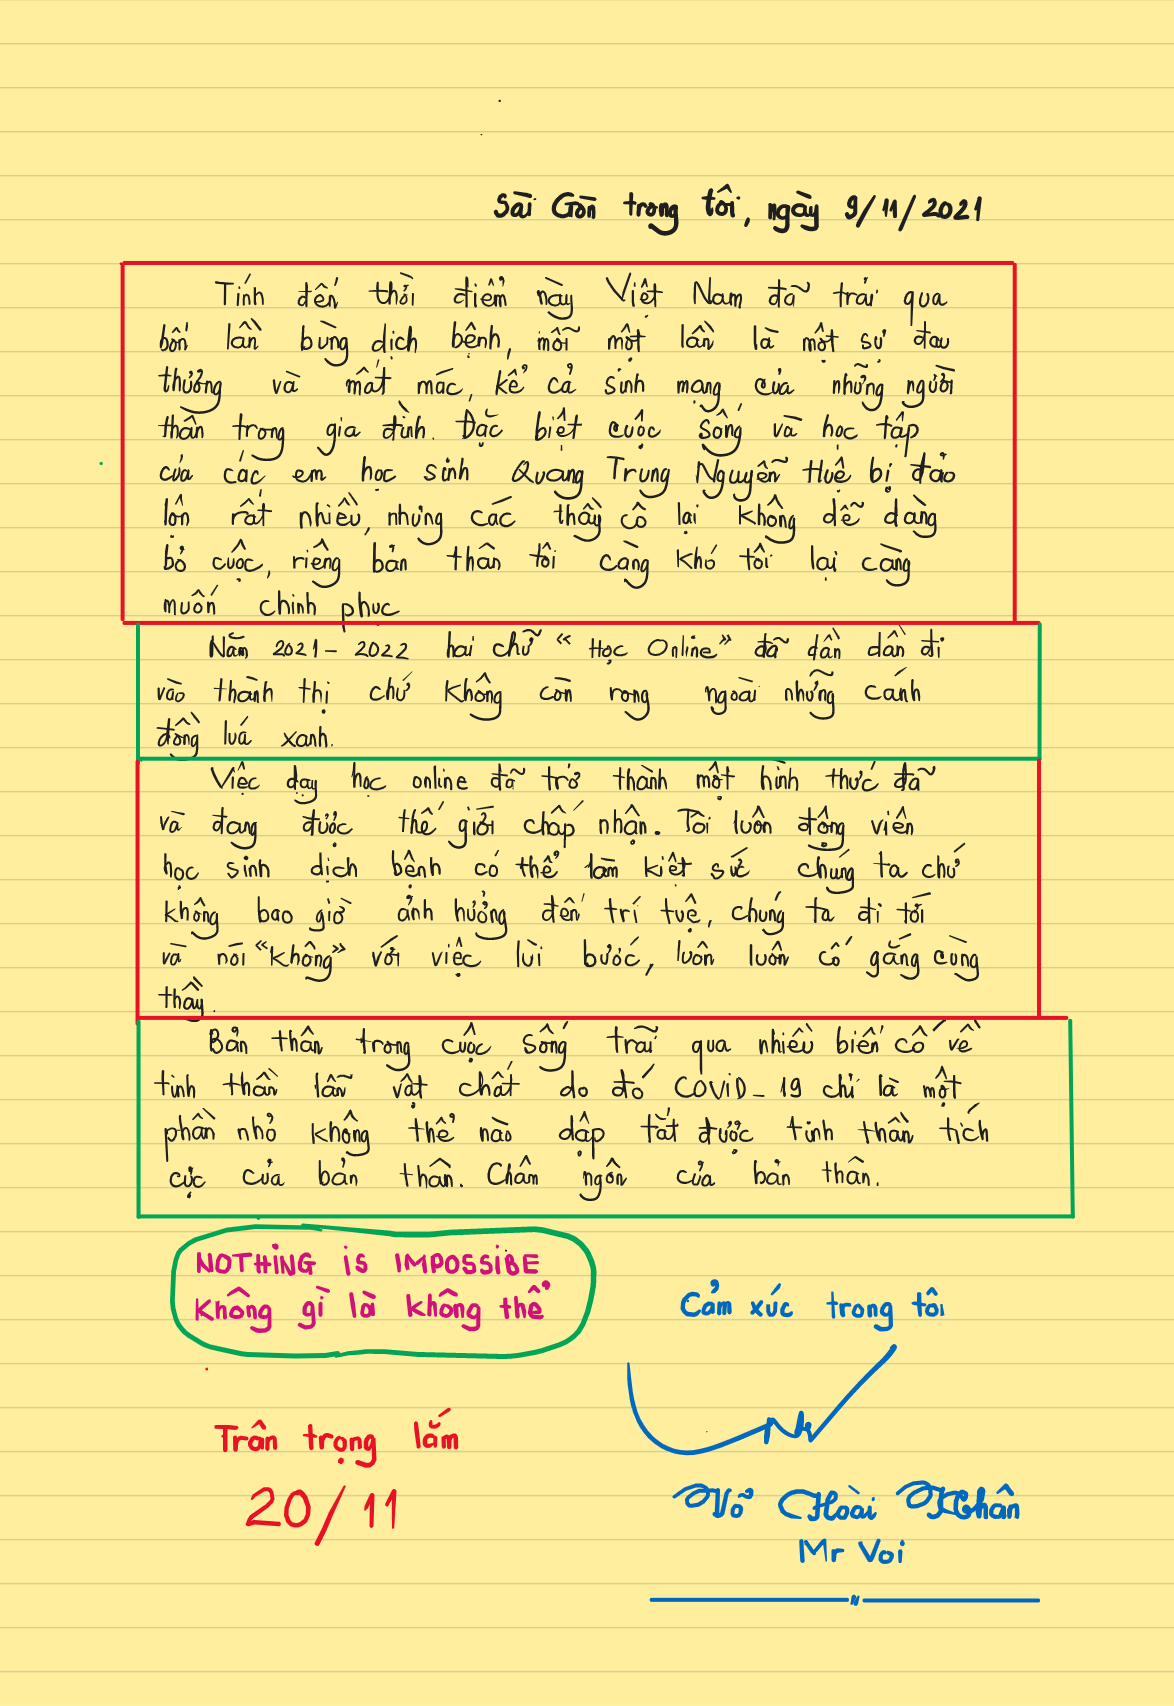 Sài Gòn trong tôi, ngày 9/11/2021
Tính đến thời điểm này Việt Nam đã trải qua
bốn lần bùng dịch bệnh, mỗi một lần là một sự đau
thương và mất mác, kể cả sinh mạng của những người
thân trong gia đình. Đặc biệt cuộc sống và học tập
của các em học sinh Quang Trung Nguyễn Huệ bị đảo
lộn rất nhiều, nhưng các thầy cô lại không dễ dàng
bỏ cuộc, riêng bản thân tôi càng khó tôi lại càng
muốn chinh phục
Năm 2021-2022 hai chữ “Học Online” đã dần dần đi
vào thành thị chứ không còn rong ngoài những cánh
đồng lúa xanh.
Việc dạy học online đã trở thành một hình thức đã
và đang được thế giới chấp nhận. Tôi luôn động viên
học sinh dịch bệnh có thể làm kiệt sức chúng ta chứ
không bao giờ ảnh hưởng đến trí tuệ, chúng ta đi tới
và nói “không” với việc lùi bước, luôn luôn cố gắng cùng
thầy.
Bản thân trong cuộc sống trãi qua nhiều biến cố về
tinh thần lẫn vật chất do đó COVID-19 chỉ là một
phần nhỏ không thể nào dập tắt được tinh thần tích
cực của bản thân. Châm ngôn của bản thân.
NOTHING is IMPOSSIBE
Không gì là không thể
Cảm xúc trong tôi
Trân trọng lắm
20/11
Võ Hoài Nhân
Mr Voi